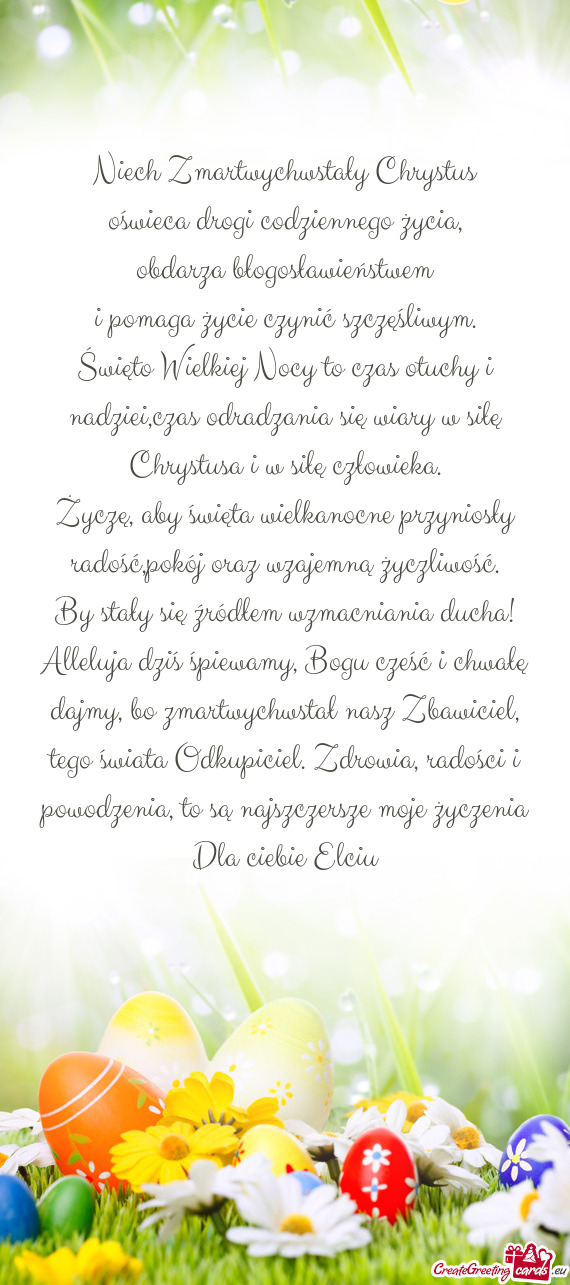 Niech Zmartwychwstały Chrystus
oświeca drogi codziennego życia,
obdarza błogosławieństwem
i pomaga życie czynić szczęśliwym.
Święto Wielkiej Nocy to czas otuchy i
nadziei,czas odradzania się wiary w siłę
Chrystusa i w siłę człowieka.
Życzę, aby święta wielkanocne przyniosły
radość,pokój oraz wzajemną życzliwość.
By stały się źródłem wzmacniania ducha!
Alleluja dziś śpiewamy, Bogu cześć i chwałę
dajmy, bo zmartwychwstał nasz Zbawiciel,
tego świata Odkupiciel. Zdrowia, radości i
powodzenia, to są najszczersze moje życzenia
Dla ciebie Elciu
CreateGreeting cards .eu